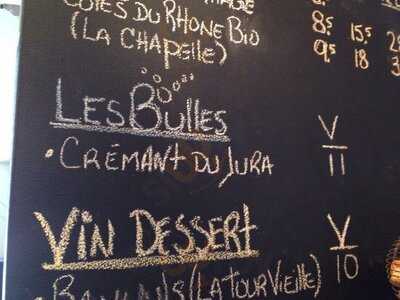 CÔTES DU RHONE BIO 8⁵ 15⁵
(LA CHAPELLE) 9⁵ 18
LES BULLES V
• CRÉMANT DU JURA 11
VIN DESSERT V
• BANYULS (LA TOUR VIEILLE) 10